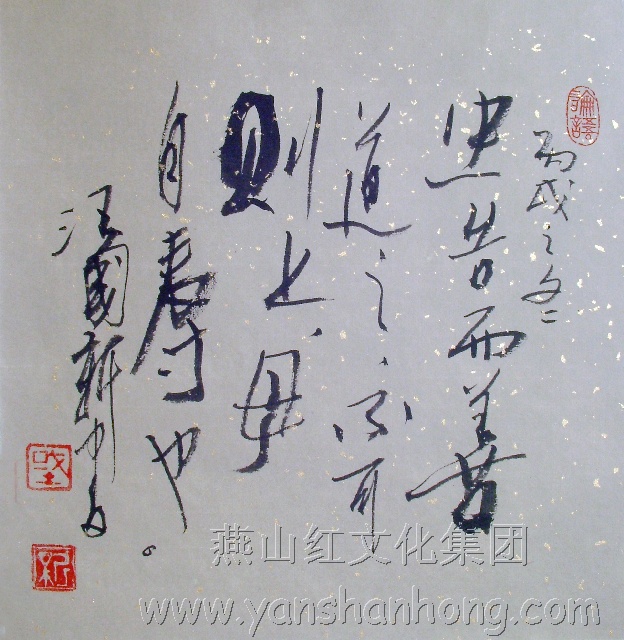 論語
丙戌之冬
忠告而善
道之不可
則止毋
自辱也
汪國新
燕山红文化集团
www.yanshanhong.com